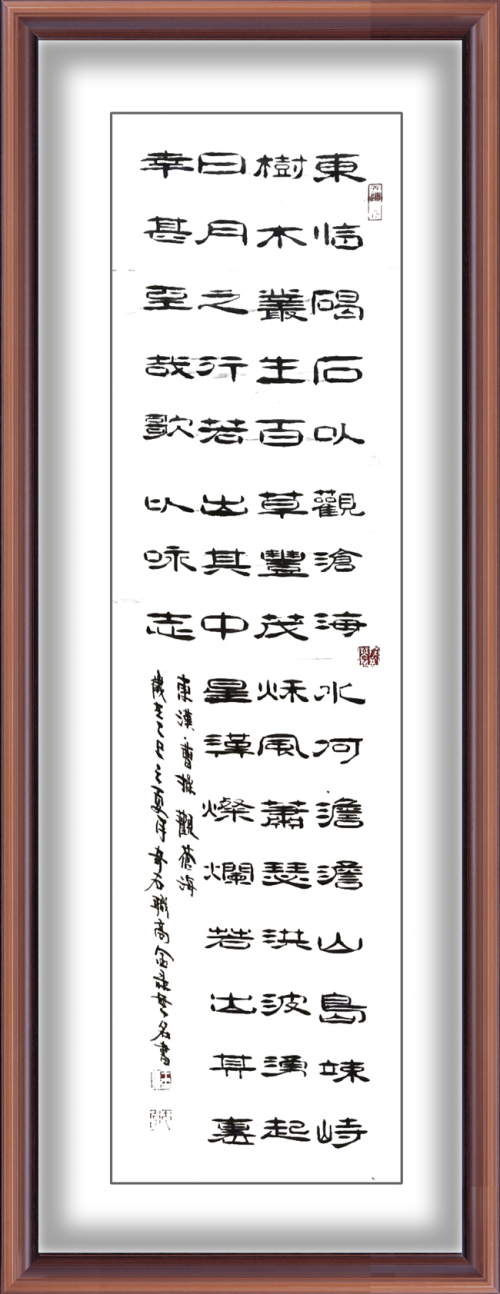 東臨碣石以觀滄海水何澹澹山島竦峙
樹木叢生百草豐茂秋風蕭瑟洪波湧起
日月之行若出其中星漢燦爛若出其裏
幸甚至哉歌以咏志
東漢·曹操 觀蒼海
歲在己丑之夏 石職高 名書